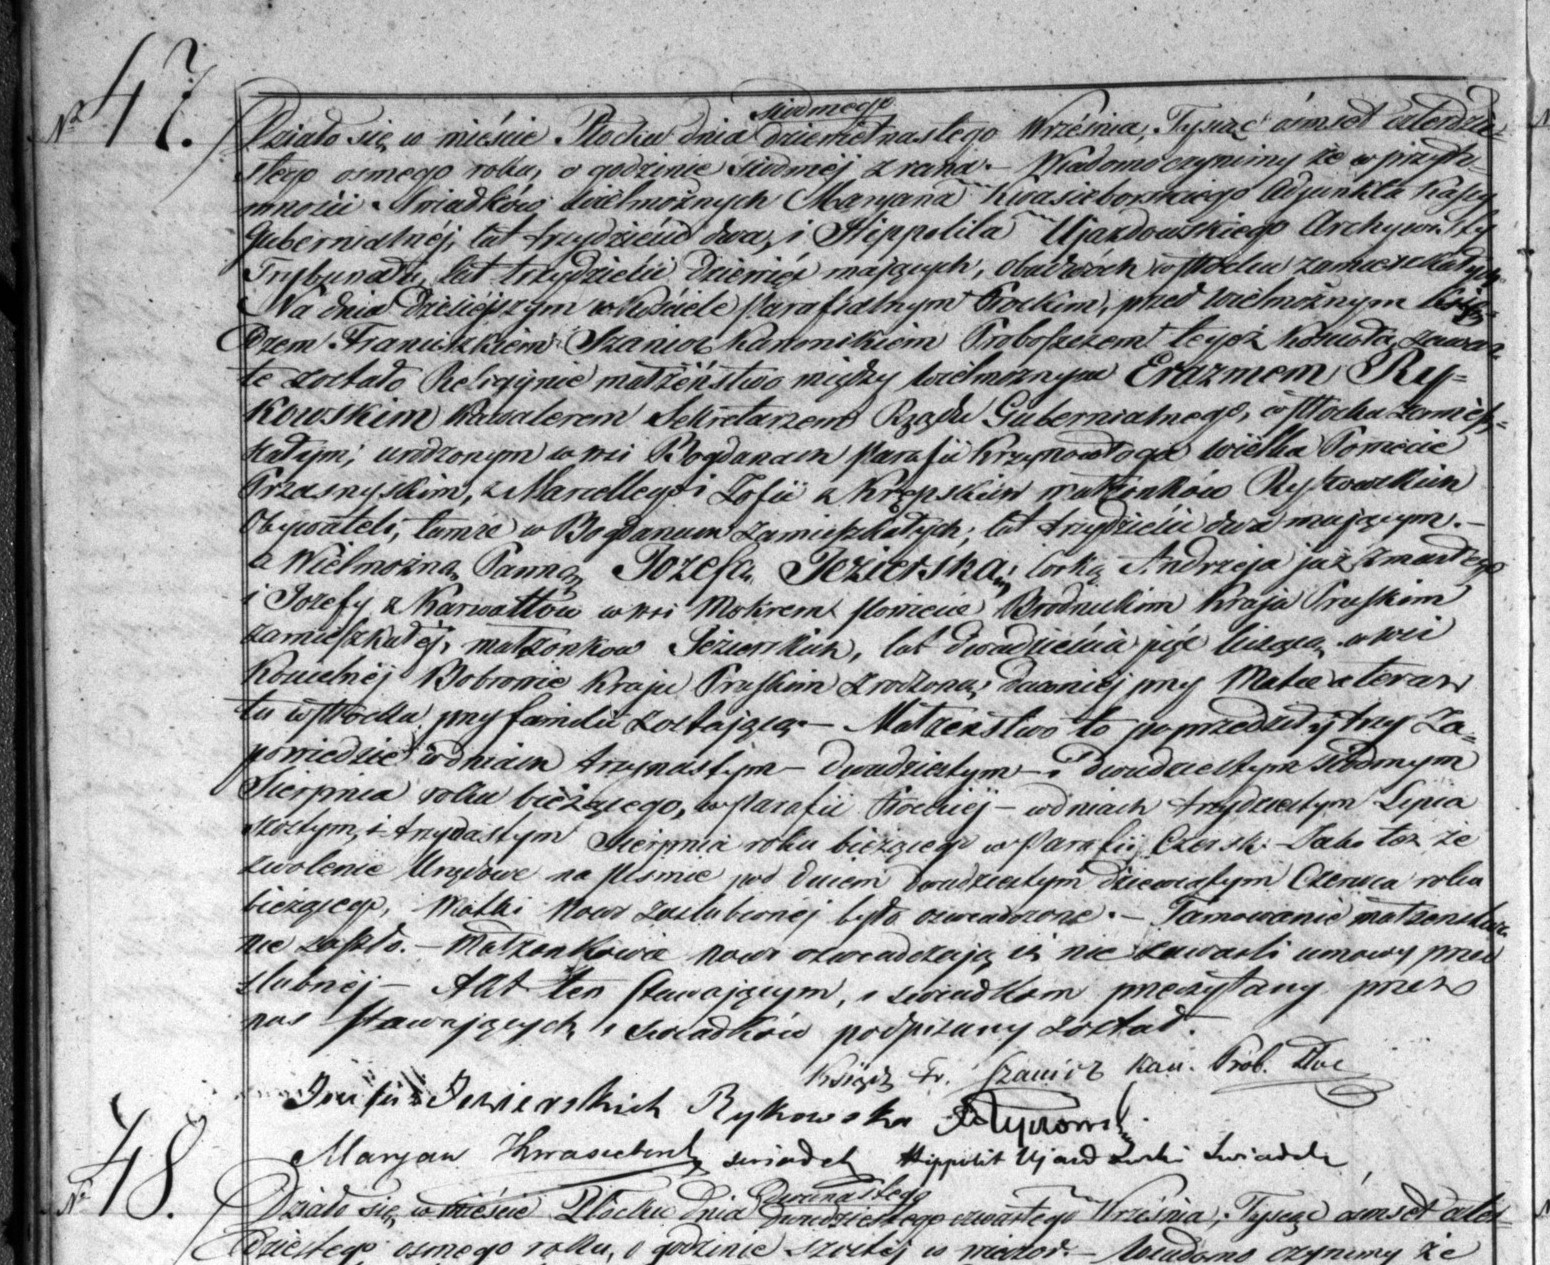 № 47.
siódmego
Działo się w mieście Płocku dnia dziewiętnastego Września, Tysiąc ośmset czterdzie-
stego osmego roku, o godzinie siódmej z rana. – Wiadomo czynimy że w przyto-
mności Świadków Wielmożnych Maryana Kwasieborskiego Adjunkta Kassy
Gubernialnéj, lat trzydzieści dwa, i Hippolita Ujazdowskiego Archywisty
Trybunału, lat trzydzieści dziewięć mających, obudwóch w Płocku zamieszkałych
Na dniu dzisiejszym w Kościele Parafialnym Płockim, przed Wielmożnym Xię-
dzem Franciszkiem Szanior Kanonikiem Proboszczem tegoż Kościoła, zawar-
te zostało Religijnie małżeństwo między Wielmożnym Erazmem Ry-
kowskim Kawalerem Sekretarzem Rządu Gubernialnego, w Płocku zamiesz-
kałym; urodzonym w wsi Bogdanach Parafii Krzynowłoga wielka Powiecie
Przasnyskim, z Marcellego i Zofii z Krępskich małżonków Rykowskich
Obywateli, tamże w Bogdanach zamieszkałych; lat trzydzieści dwa mającym. –
a Wielmożną Panną Józefą Jezierską; córką Andrzeja już zmarłego
i Józefy z Karwattów w wsi Mokrem Powiecie Brodnickim Kraju Pruskim
zamieszkałéj, małżonkow Jezierskich, lat dwadzieścia pięć liczącą w wsi
Kościelnéj Bobrowie Kraju Pruskim zrodzoną; dawniej przy Matce a teraz
tu w Płocku przy familii zostającą. – Małżeństwo to poprzedziły trzy Za-
powiedzie w dniach trzynastym – dwudziestym – i dwudziestym siódmym
Sierpnia roku bieżącego, w Parafii Płockiéj – w dniach trzydziestym Lipca
szóstym, i trzynastym Sierpnia roku bieżącego w Parafii Czersk. – Jako też że
zwolenie Urzędowe na piśmie pod dniem dwudziestym dziewiątym Czerwca roku
bieżącego, Matki Nowo zaslubionéj było oświadczone. – Tamowanie małżeństwa
nie zaszło. – Małżonkowie nowi oświadczają iż nie zawarli umowy przed
slubnéj – Akt ten stawającym, i swiadkom przeczytany przez
nas stawających i swiadków podpisany został.
Ksiądz Fr. Szanior Kan. Prob. Płoc
Józefa z Jezierskich Rykowska ERykowski
Maryan Kwasieborski swiadek Hippolit Ujazdowski Swiadek
№ 48.
dwunastego
Działo się w mieście Płocku dnia dwudziestego czwartego Września, Tysiąc ośmset czter-
dziestego osmego roku, o godzinie szóstej w wieczór. – Wiadomo czynimy że